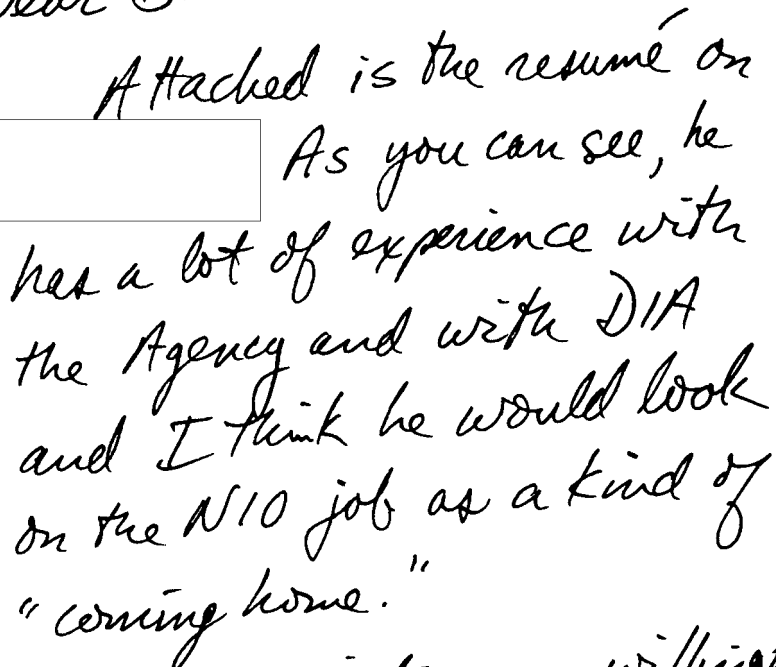 Attached is the resumé on
As you can see, he
has a lot of experience with
the Agency and with DIA
and I think he would look
on the NIO job as a kind of
"coming home."